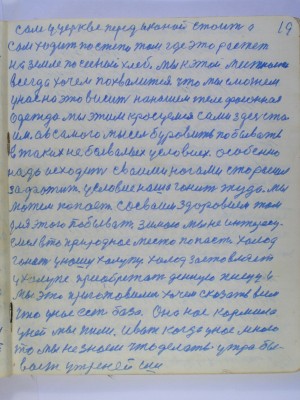 сам у церкве перед иконой стоит о 19
сам ходит по степю там где это растет
на земле посевный хлеб. мы к этой местности
всегда хочем похвалится что мы сможем
у нас на это висит на нашем теле
одежда мы этим красуемся сами здес ста
им. а в самого мысел бурлит побывать
в таких не бывалых условиях. особенно
надо исходит своеми ногами сторание
заработит. условие наше гонит туда мы
можем попаст со своим здоровием там
для этого побыват. зимою мы не интересу
емся в это природное место попаст. холод
гонит у нашу халупу холод заставляет
у халупе приобретат денную жизн.
мы это приготовили хочем сказать всем
что у нас ест база. Она нас кормит
у ней мы пим. и вот когда у нас много
то мы не знаем что делать. утро бы-
вает утреней